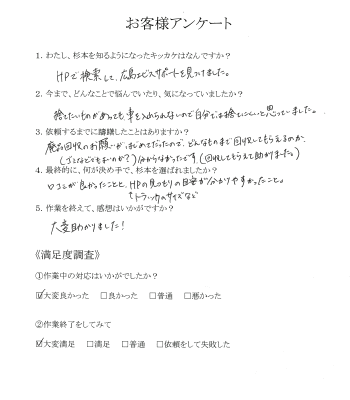 お客様アンケート
1. わたし、杉本を知るようになったキッカケはなんですか?
HPで検索して、広島エコサポートを見つけました。
2. 今まで、どんなことで悩んでいたり、気になっていましたか?
捨てたいものがあっても車を入れられないので自分では捨てにくいと思っていました。
3. 依頼するまでに躊躇したことはありますか?
廃品回収のお願いがはじめてだったので、どんなものまで回収してもらえるのか、
(ゴミなどでもよいのか?)分からなかったです。(回収してもらえて助かりました。)
4. 最終的に、何が決め手で、杉本を選ばれましたか?
口コミが良かったことと、HPの見つもりの目安が分かりやすかったこと。
トラックのサイズなど
5. 作業を終えて、感想はいかがですか?
大変助かりました!
《満足度調査》
①作業中の対応はいかがでしたか?
☑大変良かった □良かった □普通 □悪かった
②作業終了をしてみて
☑大変満足 □満足 □普通 □依頼をして失敗した